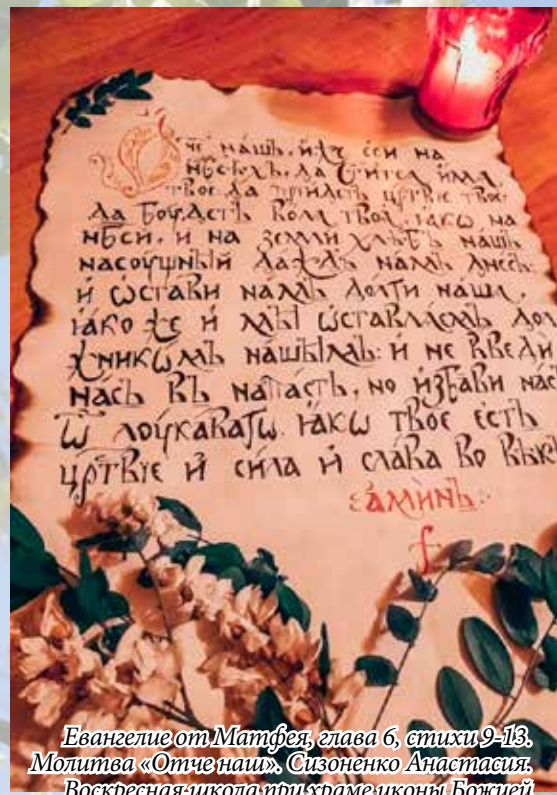 Ѻч҃е на́шъ, и́же есѝ на
нб҃сѣ́хъ, да ст҃итсѧ и́мѧ
твоѐ да прїидетъ црⷭ҇твїе твое.
да боудетъ волѧ твоѧ, ꙗкѡ на
нб҃сѝ, и на земли хлѣбъ нашъ
насоущный даждь намъ днесь:
и ѡстави намъ долги наша,
ꙗко же и мы ѡставлѧемъ дол
жникѡмъ нашымъ: и не введи
насъ въ напасть, но избави нас
ѿ лоукавагѡ. ꙗкѡ твое есть
црⷭ҇твїе и сила и слава во вѣк
аминь:
Евангелие от Матфея, глава 6, стихи 9-13.
Молитва «Отче наш». Сизоненко Анастасия.
Воскресная школа при храме иконы Божией